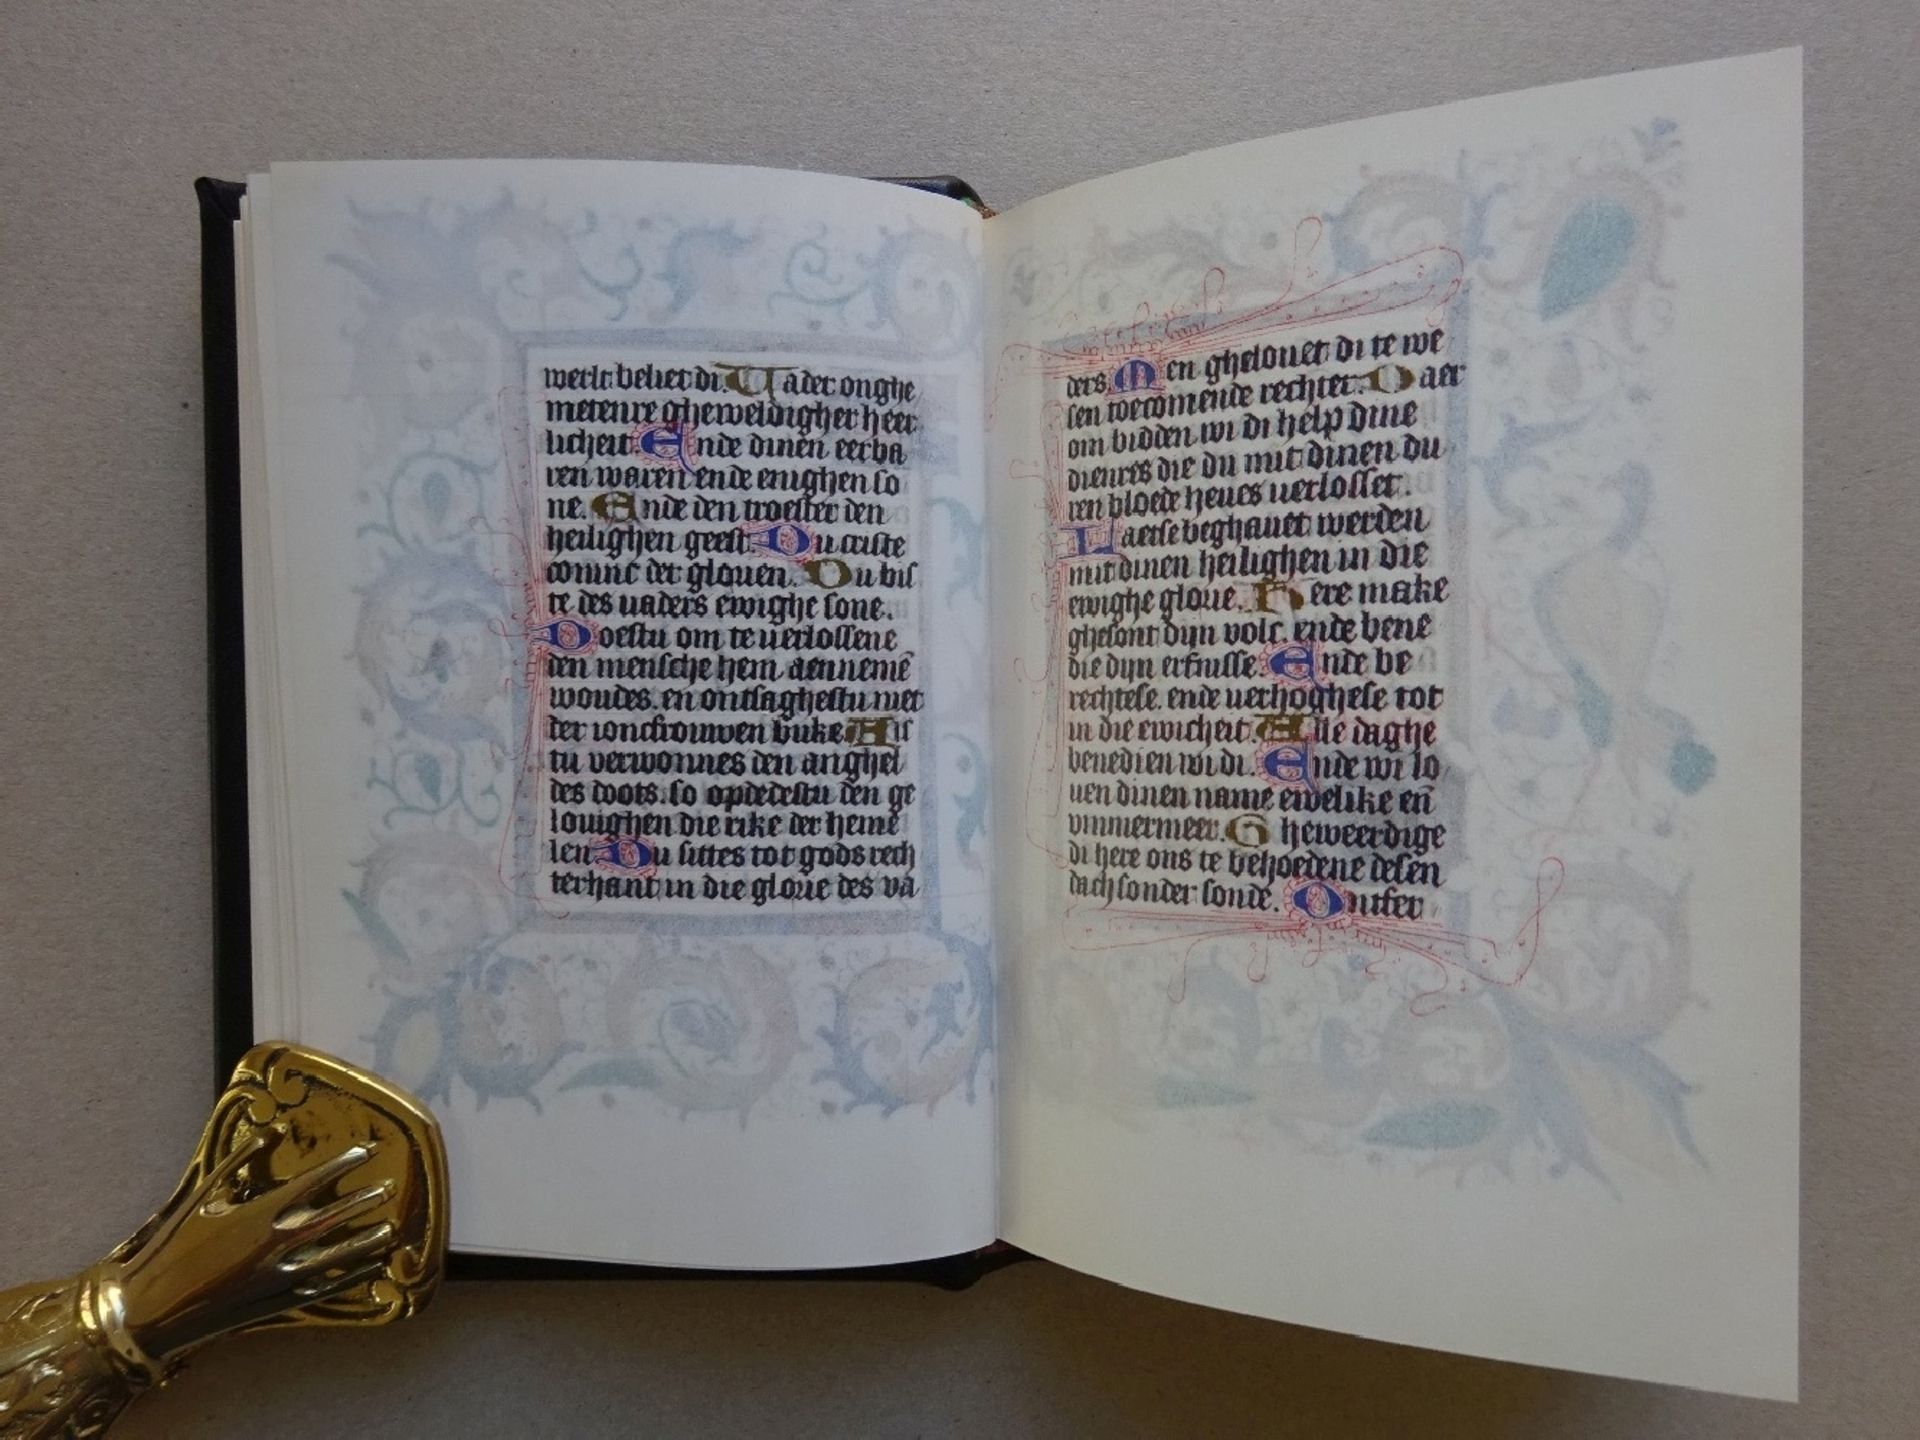 werlt beliet di. Vader onghe
metenre gheweldigher heer
licheit. Ende dinen eerba
ren waren ende enighen so
ne. Ende den troester den
heilighen geest. Du criste
coninc der glorien. Du bis
te des vaders ewighe sone.
Doestu om te verlossene
den mensche hem aennemē
woudes. en ontsaghestu niet
der ioncfrouwen buke. Als
tu verwonnes den anghel
des doots. so opdedestu den ge
louighen die rike der heme
len. Du sittes tot gods rech
terhant in die glorie des va
ders. Men ghelouet di te we
sen toecomende rechter. Daer
om bidden wi di help dine
dienres die du mit dinen du
ren bloede heues verlosset.
Laetse beghauet werden
mit dinen heilighen in die
ewighe glorie. Here make
ghesont dijn volc. ende bene
die dijn erfnisse. Ende be
rechtese. ende verhoghese tot
in die ewicheit. Alle daghe
benedien wi di. Ende wi lo
uen dinen name ewelike en̄
ummermeer. Gheweerdige
di here ons te behoedene desen
dach sonder sonde. Ontfer